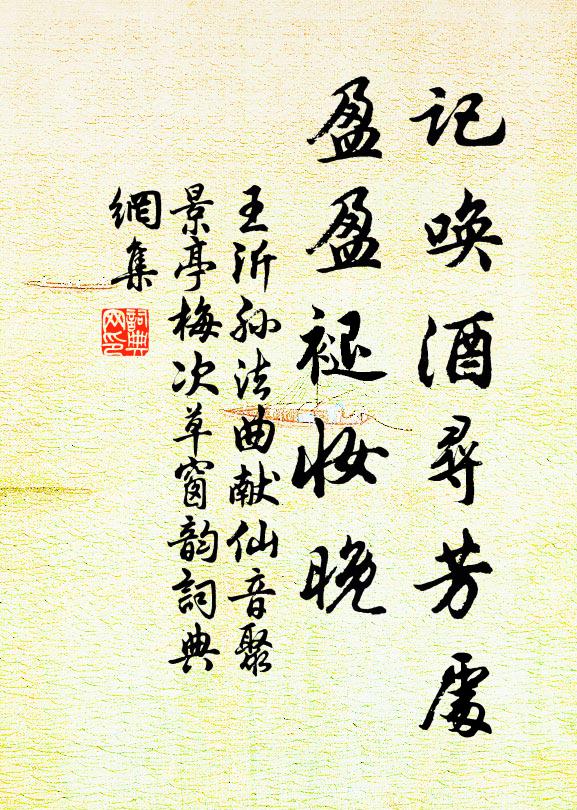 记唤酒寻芳處
盈盈褪妆晚
王沂孙法曲献仙音聚
景亭梅次草窗韵詞典
網集
詞典
网印